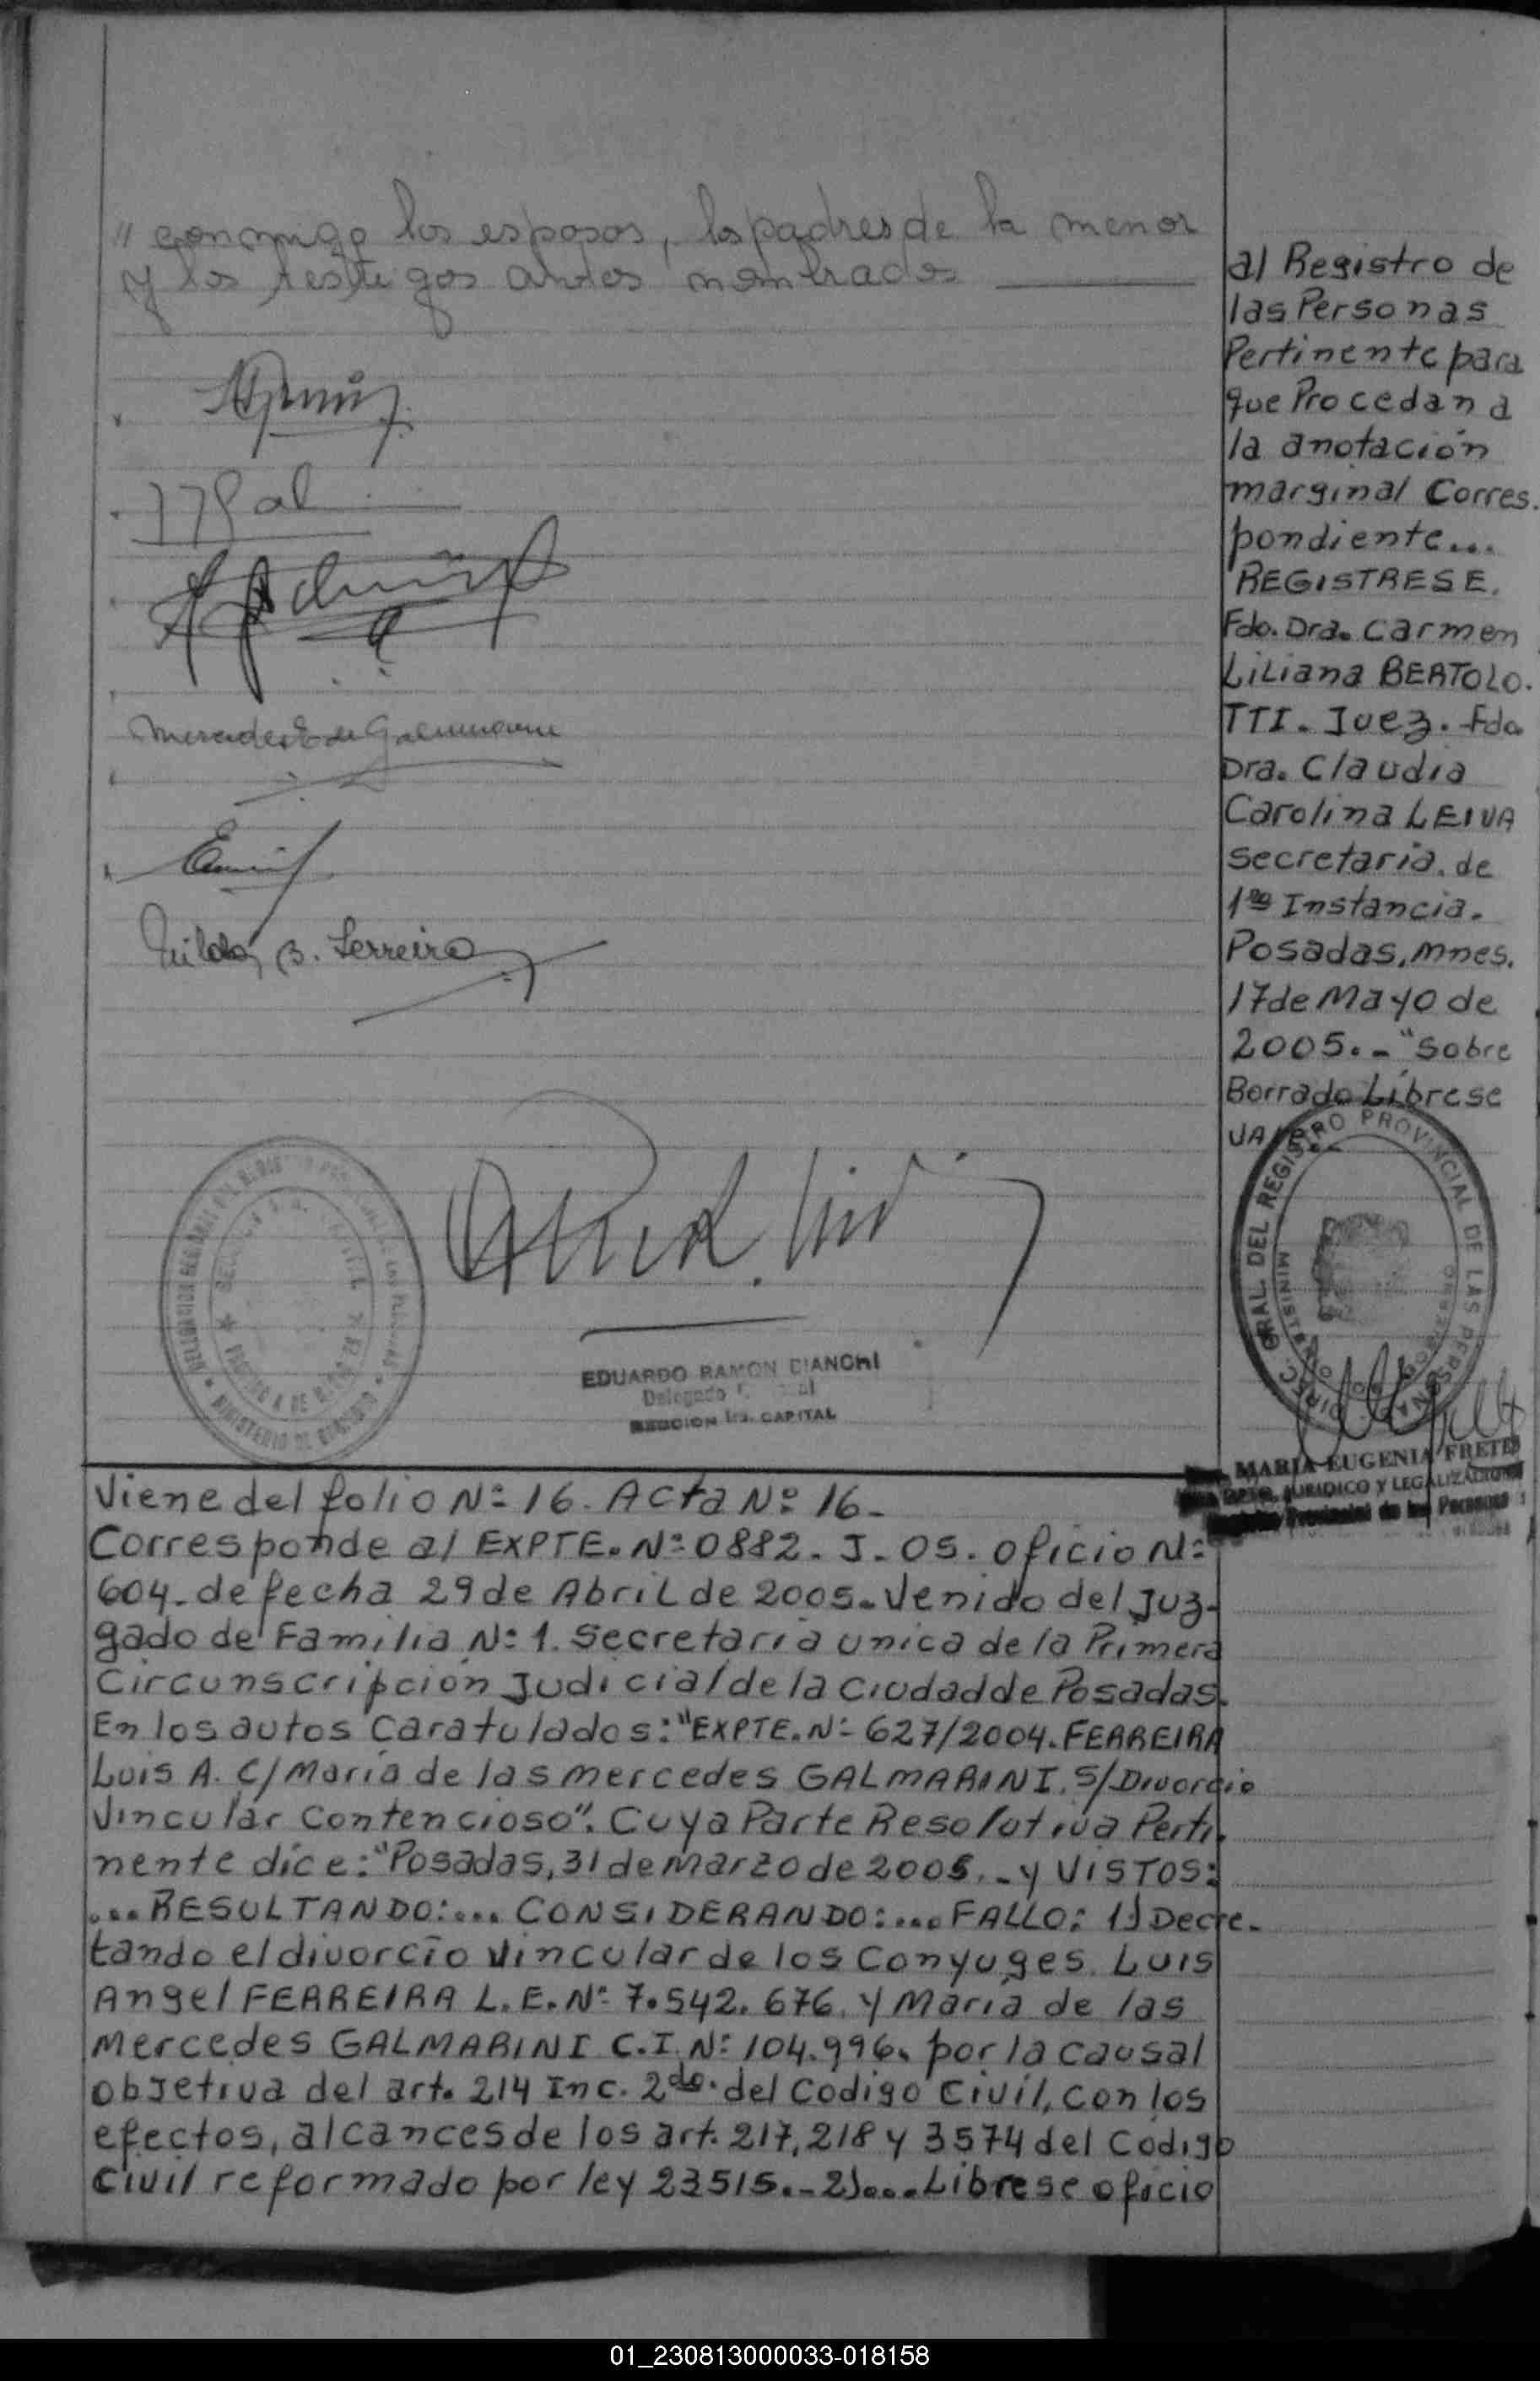 " conmigo los esposos, los padres de la menor
y los testigos antes nombrados
Mercedes de Galmarini
Hilda B. Ferreira
EDUARDO RAMON BIANCHI
Delegado
SECCION 1ra. CAPITAL
Viene del folio Nº 16. Acta Nº 16-
Corresponde al EXPTE. Nº 0882. J. 05. oficio Nº
604. de fecha 29 de Abril de 2005. Venido del Juz-
gado de Familia Nº 1. Secretaría unica de la Primera
Circunscripción Judicial de la Ciudad de Posadas.
En los autos Caratulados: "EXPTE. Nº 627/2004. FERREIRA
Luis A. C/ María de las mercedes GALMARINI. S/Divorcio
Vincular Contencioso". Cuya Parte Resolutiva Perti-
nente dice: "Posadas, 31 de marzo de 2005.- y VISTOS:
... RESULTANDO:... CONSIDERANDO:... FALLO: 1) Decre-
tando el divorcio Vincular de los Conyuges. Luis
Angel FERREIRA L.E. Nº 7.542.676. y María de las
Mercedes GALMARINI C.I. Nº 104.996. por la causal
objetiva del art. 214 Inc. 2do. del Codigo Civil, con los
efectos, alcances de los art. 217, 218 y 3574 del Codigo
Civil reformado por ley 23515.-2).... Líbrese oficio
al Registro de
las Personas
Pertinente para
que Procedan a
la anotación
marginal Corres.
pondiente...
REGISTRESE.
Fdo. Dra. Carmen
Liliana BERTOLO.
TTI. Juez. Fdo
Dra. Claudia
Carolina LEIVA
Secretaria. de
1ra Instancia.
Posadas, mnes.
17 de Mayo de
2005.- "Sobre
Borrado Líbrese
DIREC. GRAL. DEL REGISTRO PROVINCIAL DE LAS PERSONAS
MARIA EUGENIA FRETES
DPTO. JURIDICO Y LEGALIZACIONES
Registro Provincial de las Personas
01_230813000033-018158